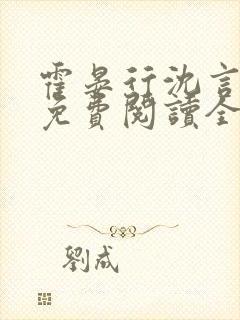 霍晏行沈言
免費閱讀全
劉成